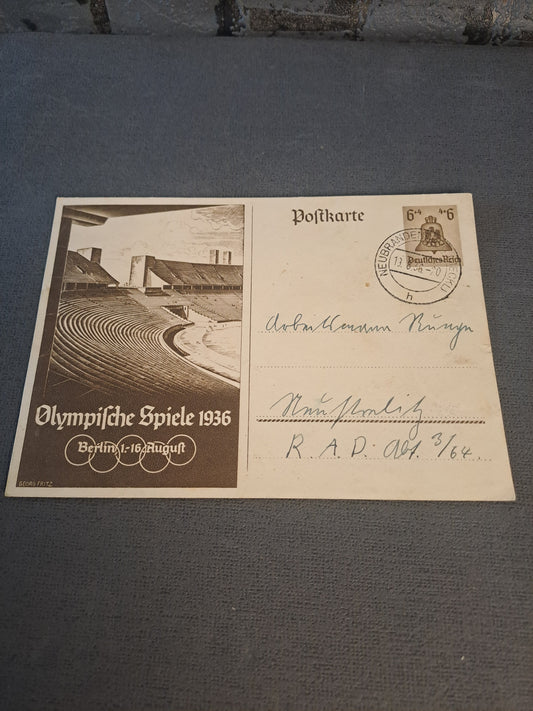 Postkarte
6+4 4+6
Deutsches Reich
NEUBRANDE
h
Arbeitsmann Runge
Neustrelitz
R. A. D. Abt. 3/64.
Olympische Spiele 1936
Berlin 1.-16. August
GEORG FRITZ